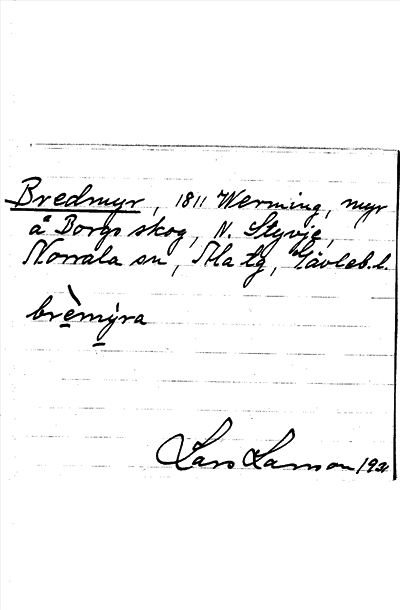 Bredmyr, 1811 Werming, myr
å Borgs skog, N. Styvje,
Norrala sn, Ala tg, Gävleb. l.
brèmýra
Lars Larsson 192